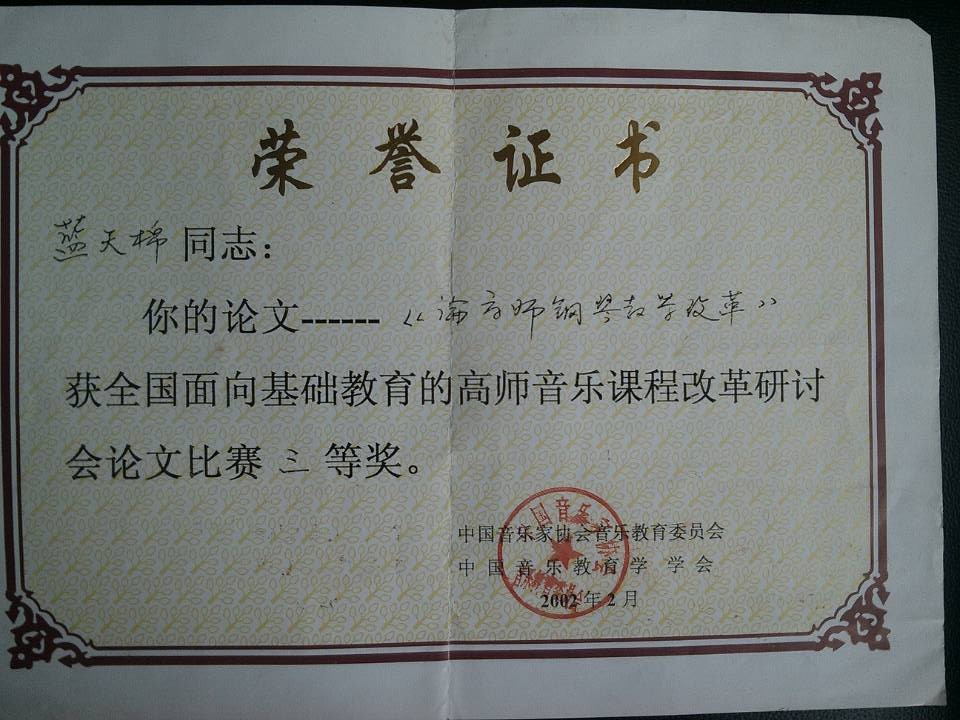 荣誉证书
蓝天棉 同志：
你的论文------《论高师钢琴教学改革》
获全国面向基础教育的高师音乐课程改革研讨
会论文比赛 三 等奖。
中国音乐家协会音乐教育委员会
中国音乐教育学 学会
2002年2月